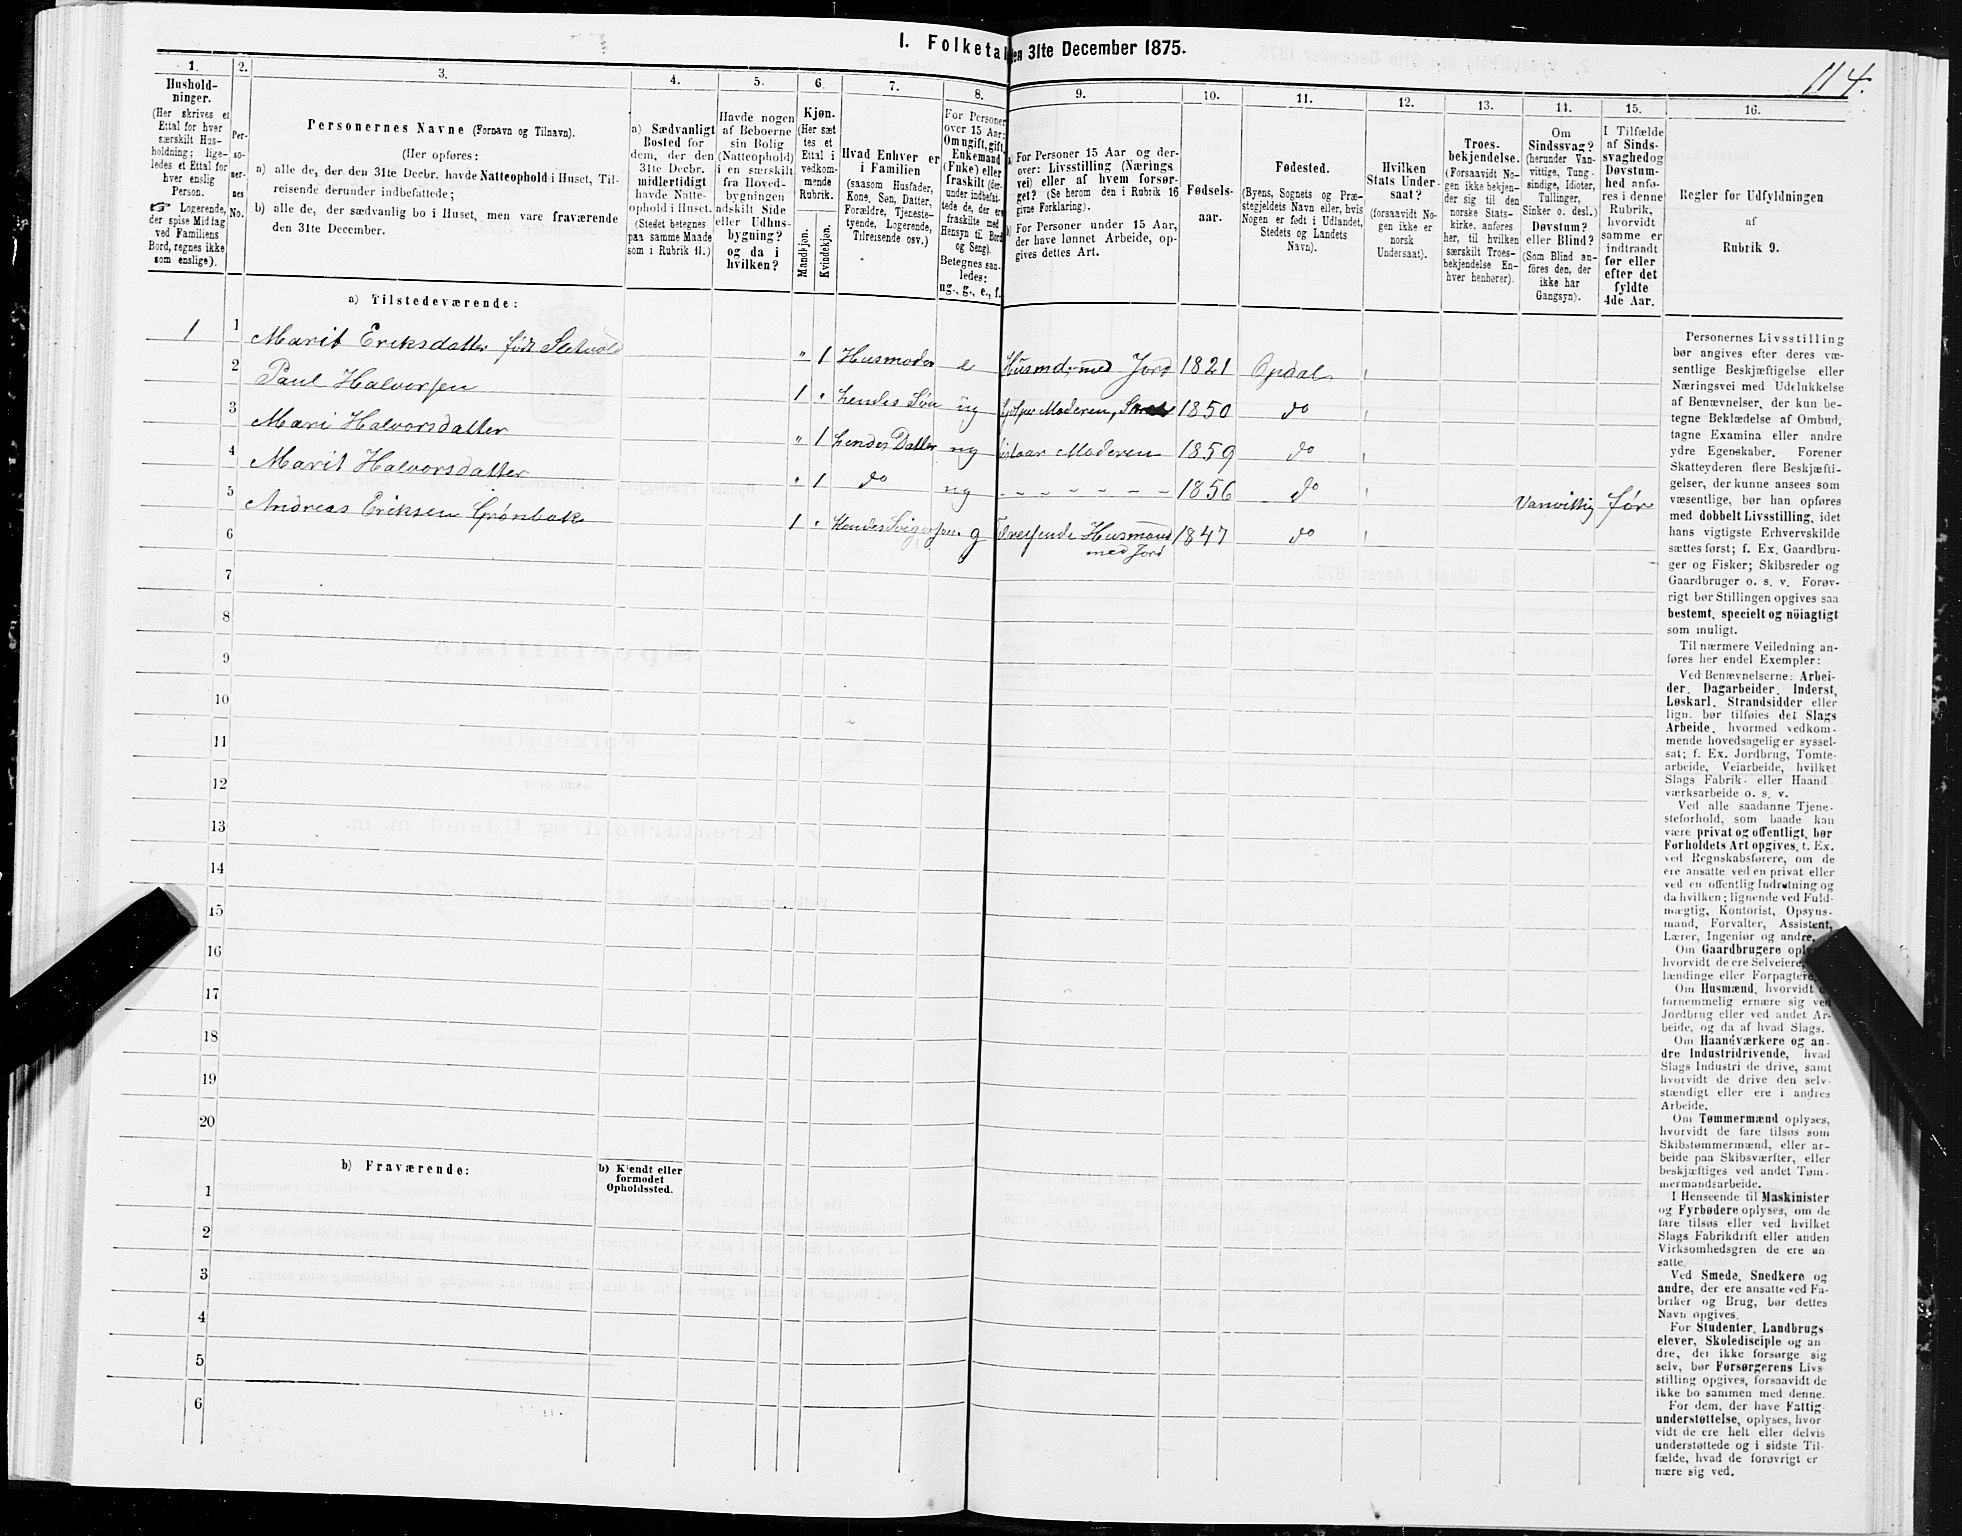 I. Folketal den 31te December 1875.
114.
1.
Hushold-
ninger.
(Her skrives et
Ettal for hver
særskilt Hus-
holdning; lige-
ledes et Ettal for
hver enslig
Person.
☞ Logerende,
der spise Middag
ved Familiens
Bord, regnes ikke
som enslige).
2.
Per-
so-
ner-
nes
No.
3.
Personernes Navne (Fornavn og Tilnavn).
(Her opføres:
a) alle de, der den 31te Decbr. havde Natteophold i Huset, Til-
reisende derunder indbefattede;
b) alle de, der sædvanlig bo i Huset, men vare fraværende
den 31te December.
4.
a) Sædvanligt
Bosted for
dem, der den
31te Decbr.
midlertidigt
havde Natte-
ophold i Huset.
(Stedet betegnes
paa samme Maade
som i Rubrik 11.)
5.
Havde nogen
af Beboerne
sin Bolig
(Natteophold)
i en særskilt
fra Hoved-
bygningen
adskilt Side
eller Udhus-
bygning?
og da i
hvilken?
6.
Kjøn.
(Her sæt-
tes et
Ettal i
vedkom-
mende
Rubrik.
Mandkjøn.
Kvindekjøn.
7.
Hvad Enhver er
i Familien
(saasom Husfader,
Kone, Søn, Datter,
Forældre, Tjeneste-
tyende, Logerende,
Tilreisende osv.)
8.
For Personer
over 15 Aar:
Om ugift, gift,
Enkemand
(Enke) eller
fraskilt (der-
under indbefat-
tede de, der ere
fraskilte med
Hensyn til Bord
og Seng).
Betegnes saa-
ledes:
ug., g., e., f.
9.
a) For Personer 15 Aar og der-
over: Livsstilling (Nærings
vei) eller af hvem forsør-
get? (Se herom den i Rubrik 16
givne Forklaring).
b) For Personer under 15 Aar,
der have lønnet Arbeide, op-
gives dettes Art.
10.
Fødsels-
aar.
11.
Fødested.
(Byens, Sognets og Præ-
stegjeldets Navn eller, hvis
Nogen er født i Udlandet,
Stedets og Landets
Navn).
12.
Hvilken
Stats Under-
saat?
(forsaavidt No-
gen ikke er
norsk
Undersaat).
13.
Troes-
bekjendelse.
(Forsaavidt No-
gen ikke bekjen-
der sig til den
norske Stats-
kirke, anføres
her, til hvilken
særskilt Troes-
bekjendelse En-
hver henhører).
14.
Om
Sindssvag?
(herunder Van-
vittige, Tung-
sindige, Idioter,
Tullinger,
Sinker o. desl.)
Døvstum?
eller Blind?
(Som Blind an-
føres den, der
ikke har
Gangsyn).
15.
I Tilfælde
af Sinds-
svaghed og
Døvstum-
hed anfø-
res i denne
Rubrik,
hvorvidt
samme er
indtraadt
før eller
efter det
fyldte
4de Aar.
16.
Regler for Udfyldningen
af
Rubrik 9.
a) Tilstedeværende:
1 1 Marit Eriksdatter født Sletvold „ 1 Husmoder e Husmd. med Jord 1821 Opdal
2 Paul Halvorsen 1 „ hendes Søn ug hjelper Moderen, 1850 do
3 Mari Halvorsdatter „ 1 hendes Datter ug hos Moderen 1859 do
4 Marit Halvorsdatter „ 1 do ug - - - - - - 1856 do Vanvittig før
5 Andreas Eriksen Grønbak 1 „ Hendes Svigersøn. g Husmand 1847 do
med Jord
6
7
8
9
10
11
12
13
14
15
16
17
18
19
20
b) Fraværende:
b) Kjendt eller
formodet
Opholdssted.
1
2
3
4
5
6
Personernes Livsstilling
bør angives efter deres væ-
sentlige Beskjæftigelse eller
Næringsvei med Udelukkelse
af Benævnelser, der kun be-
tegne Beklædelse af Ombud,
tagne Examina eller andre
ydre Egenskaber. Forener
Skatteyderen flere Beskjæfti-
gelser, der kunne ansees som
væsentlige, bør han opføres
med dobbelt Livsstilling, idet
hans vigtigste Erhvervskilde
sættes først; f. Ex. Gaardbru-
ger og Fisker; Skibsreder og
Gaardbruger o. s. v. Forøv-
rigt bør Stillingen opgives saa
bestemt, specielt og nöiagtigt
som muligt.
Til nærmere Veiledning an-
føres her endel Exempler:
Ved Benævnelserne: Arbei-
der, Dagarbeider, Inderst,
Løskarl, Strandsidder eller
lign. bør tilføies det Slags
Arbeide, hvormed vedkom-
mende hovedsagelig er syssel-
sat; f. Ex. Jordbrug, Tomte-
arbeide, Veiarbeide, hvilket
Slags Fabrik- eller Haand
værksarbeide o. s. v.
Ved alle saadanne Tjene-
steforhold, som baade kan
være privat og offentligt, bør
Forholdets Art opgives, t. Ex.
ved Regnskabsførere, om de
ere ansatte ved en privat eller
ved en offentlig Indretning og
da hvilken; lignende ved Fuld-
mægtig, Kontorist, Opsyns-
mand, Forvalter, Assistent,
Lærer, Ingeniør og andre.
Om Gaardbrugere
hvorvidt de ere Selveiere,
lændinge eller Forpagtere.
Om Husmænd, hvorvidt
fornemmelig ernære sig ved
Jordbrug eller ved andet Ar-
beide, og da af hvad Slags.
Om Haandværkere og an-
dre Industridrivende, hvad
Slags Industri de drive, samt
hvorvidt de drive den selv-
stændigt eller ere i andres
Arbeide.
Om Tømmermænd oplyses,
hvorvidt de fare tilsøs som
Skibstømmermænd, eller ar-
beide paa Skibsværfter, eller
beskjæftiges ved andet Tøm-
mermandsarbeide.
I Henseende til Maskinister
og Fyrbødere oplyses, om de
fare tilsøs eller ved hvilket
Slags Fabrikdrift eller anden
Virksomhedsgren de ere an-
satte.
Ved Smede, Snedkere og
andre, der ere ansatte ved Fa-
briker og Brug, bør dettes
Navn opgives.
For Studenter, Landbrugs
elever, Skoledisciple og an
dre, der ikke forsørge sig
selv, bør Forsørgerens Livs
stilling opgives, forsaavidt de
ikke bo sammen med denne.
For dem, der have Fattig
understøttelse, oplyses, hvor-
vidt de ere helt eller delvis
understøttede og i sidste Til-
fælde, hvad de forøvrigt er
nære sig ved.